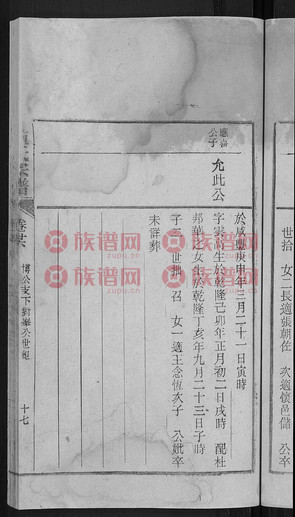 世拾 女二長適張朝佐 次適懷邑儲 公
應
公子
允此公
於咸豐庚申年三月二十一日寅時
生於乾隆己卯年正月初二日戌時 配杜
邦華之女生於乾隆丁亥年九月二十三日子時
子二世 召 女一適王念恆次子 公妣卒
未詳葬
宗譜
博公支下
十七
族谱网